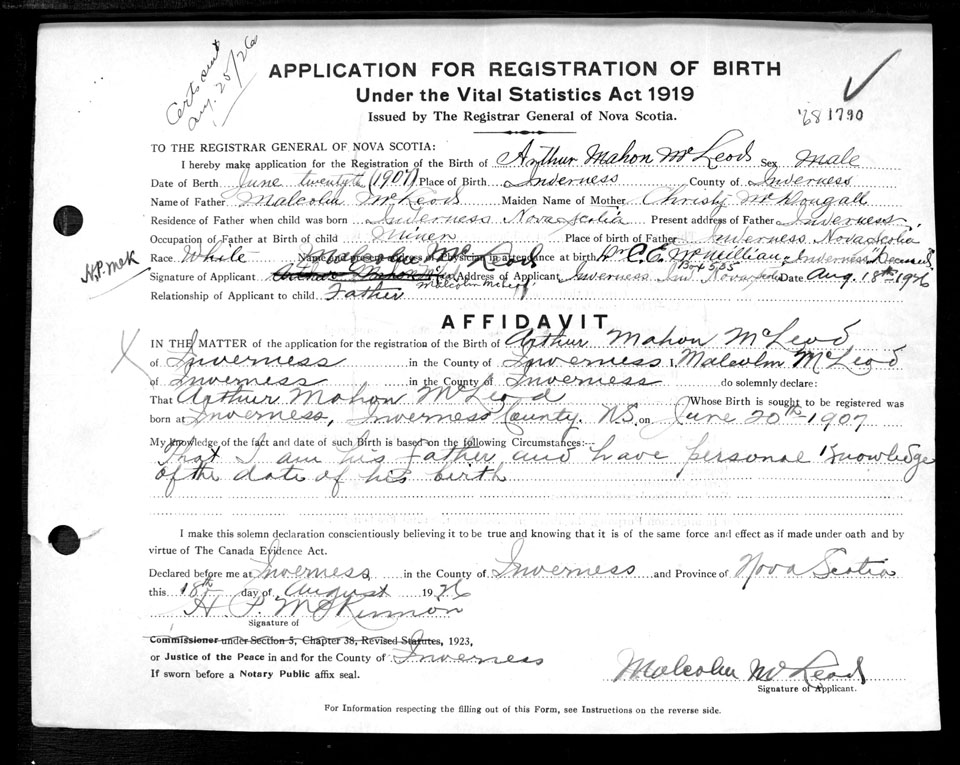 Certs out
Aug. 25/26
APPLICATION FOR REGISTRATION OF BIRTH
Under the Vital Statistics Act 1919
Issued by The Registrar General of Nova Scotia.
'68 1790
TO THE REGISTRAR GENERAL OF NOVA SCOTIA:
I hereby make application for the Registration of the Birth of Arthur Mahon McLeod Sex Male
Date of Birth June twentyth (1907) Place of Birth Inverness County of Inverness
Name of Father Malcolm McLeod Maiden Name of Mother Christy McDougall
Residence of Father when child was born Inverness Nova Scotia Present address of Father Inverness
Occupation of Father at Birth of child Miner Place of birth of Father Inverness Nova Scotia
Race White Name and present address of Physician in attendance at birth Dr C.E. McMillian, Inverness Deceased
H.P. McK
Malcolm McLeod
Box 535
Signature of Applicant Arthur Mahon McLeod Address of Applicant Inverness Nova Scotia Date Aug. 18th 1926
Malcolm McLeod
Relationship of Applicant to child Father
AFFIDAVIT
IN THE MATTER of the application for the registration of the Birth of Arthur Mahon McLeod
of Inverness in the County of Inverness I, Malcolm McLeod
of Inverness in the County of Inverness do solemnly declare:
That Arthur Mahon McLeod Whose Birth is sought to be registered was
born at Inverness, Inverness County. N.S. on June 20th 1907
My knowledge of the fact and date of such Birth is based on the following Circumstances:--
That I am his Father and have personal knowledge
of the date of his birth
I make this solemn declaration conscientiously believing it to be true and knowing that it is of the same force and effect as if made under oath and by
virtue of The Canada Evidence Act.
Declared before me at Inverness in the County of Inverness and Province of Nova Scotia
this 18th day of August 1926
H. P. McKinnon
Signature of
Commissioner under Section 5, Chapter 38, Revised Statutes, 1923,
or Justice of the Peace in and for the County of Inverness
If sworn before a Notary Public affix seal.
Malcolm McLeod
Signature of Applicant.
For Information respecting the filling out of this Form, see Instructions on the reverse side.